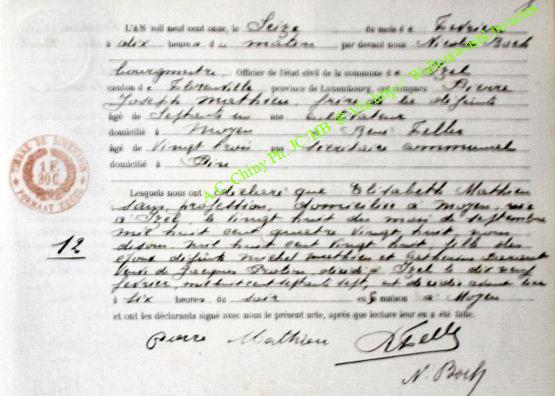 L'AN mil neuf cent onze, le Seize du mois de Février
à dix heures du matin par devant nous Nicolas Boch
bourgmestre Officier de l'état civil de la commune de Izel
canton de Florenville province de Luxembourg, est comparu Pierre
Joseph Mathieu, frère de la défunte
âgé de Septante un ans cultivateur
domicilié à Moyen René Feller
âgé de Vingt trois ans secrétaire communal
domicilié à Pin
Lesquels nous ont déclaré que Elisabeth Mathieu
sans profession, domiciliée à Moyen, née
à Izel le vingt huit du mois de septembre
mil huit cent quatre vingt huit nous
disons mil huit cent vingt huit, fille des
époux défunts Michel Mathieu et Catherine
veuve de Jacques décédé à Izel le dix neuf
février, mil huit cent septante sept, est décédée avant hier
à six heures du soir en sa maison à Moyen
et ont les déclarants signé avec nous le présent acte, après que lecture leur en a été faite.
Pierre Mathieu RFeller
N. Boch
12
TIMBRE DE DIMENSION
1 F.
30C
FORMAAT ZEGEL
A.C. Chiny Ph. JC HB @ Viabloga - Wallons